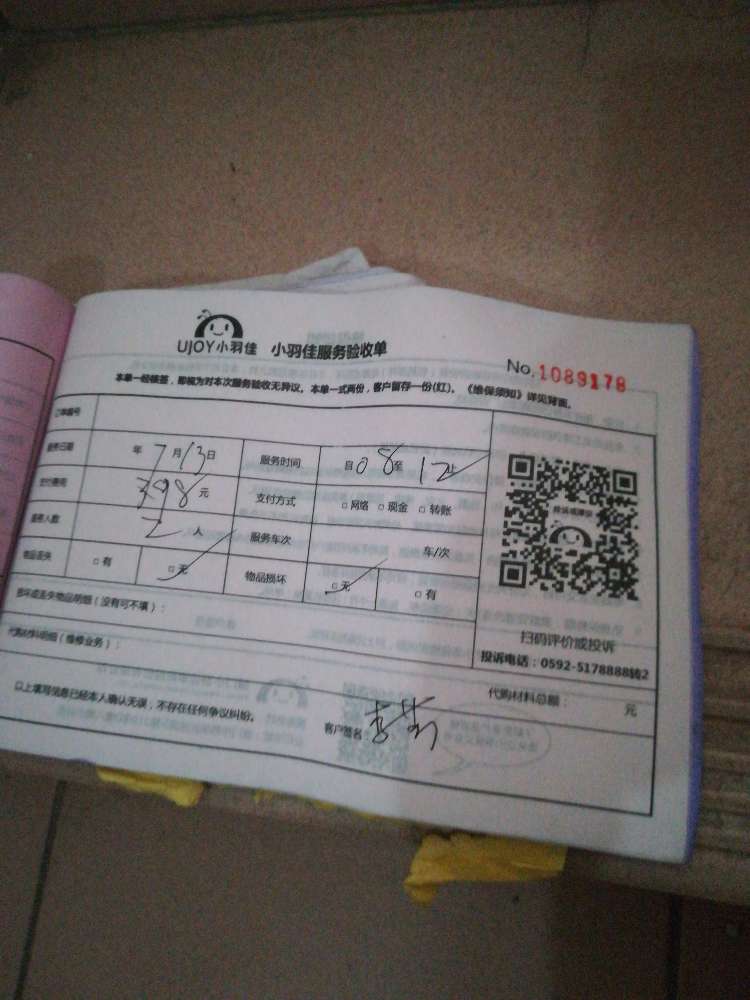 UJOY小羽佳 小羽佳服务验收单
No.1089178
本单一经核签，即视为对本次服务验收无异议。本单一式两份，客户留存一份(红)。《维保须知》详见背面。
订单编号
服务日期 年7月13日 服务时间 自08至12止
支付费用 398元 支付方式 □网络 □现金 □转账
服务人数 2人 服务车次 车/次
物品丢失 □有 □无 物品损坏 □无 □有
投诉或建议
扫码评价或投诉
投诉电话：0592-5178888转2
损坏或丢失物品明细（没有可不填）：
代购材料明细（维修业务）：
代购材料总额： 元
以上填写信息已经本人确认无误，不存在任何争议纠纷。
客户签名